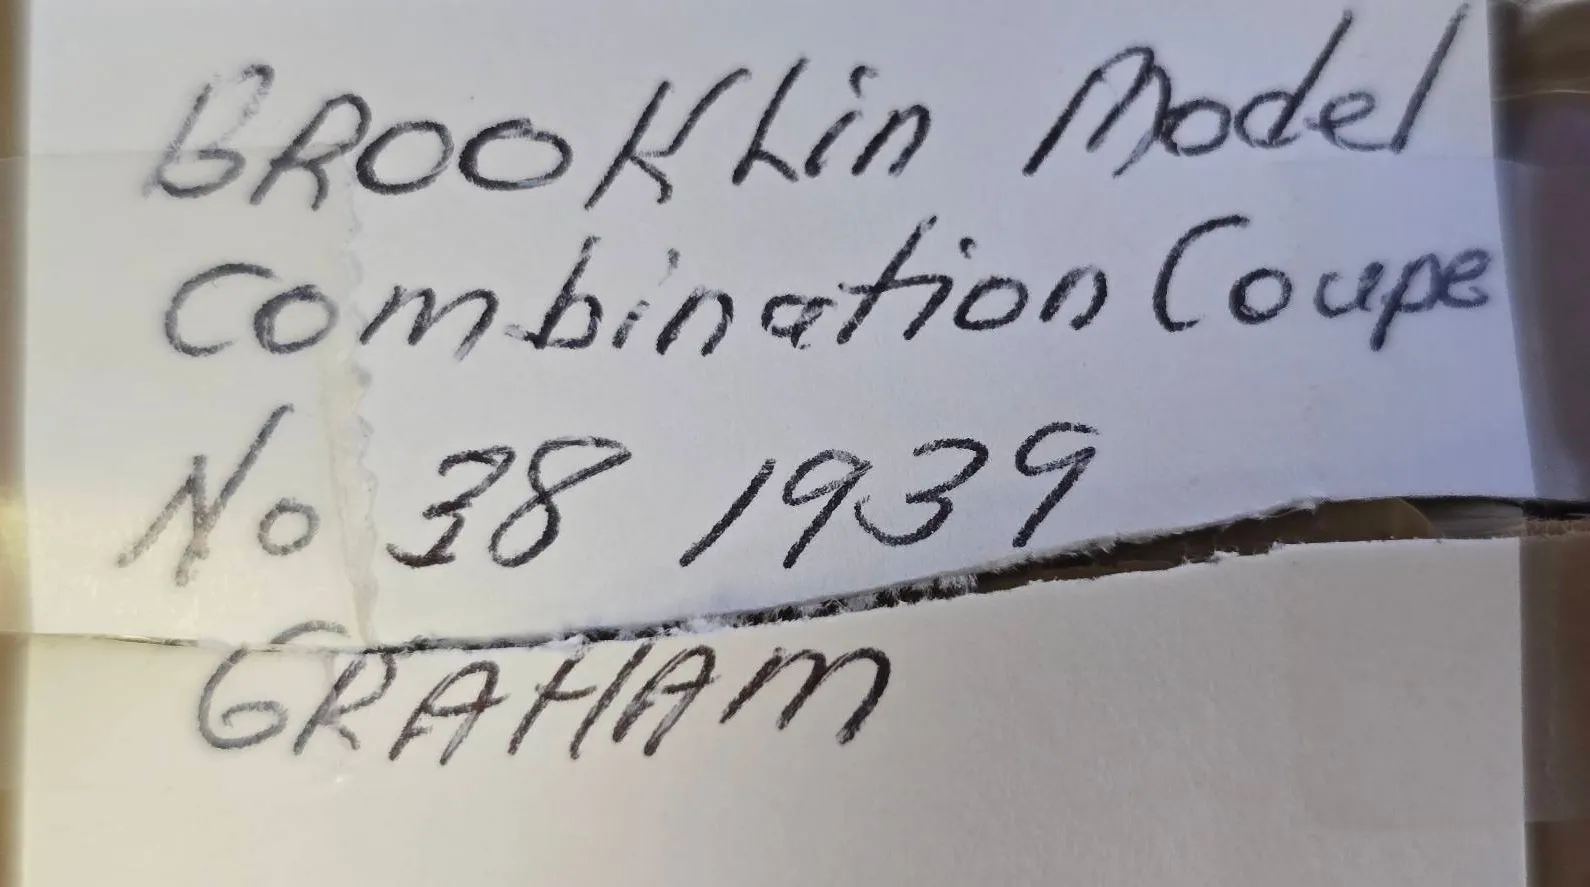 BROOKLin Model
Combination Coupe
No 38 1939
GRAHAM